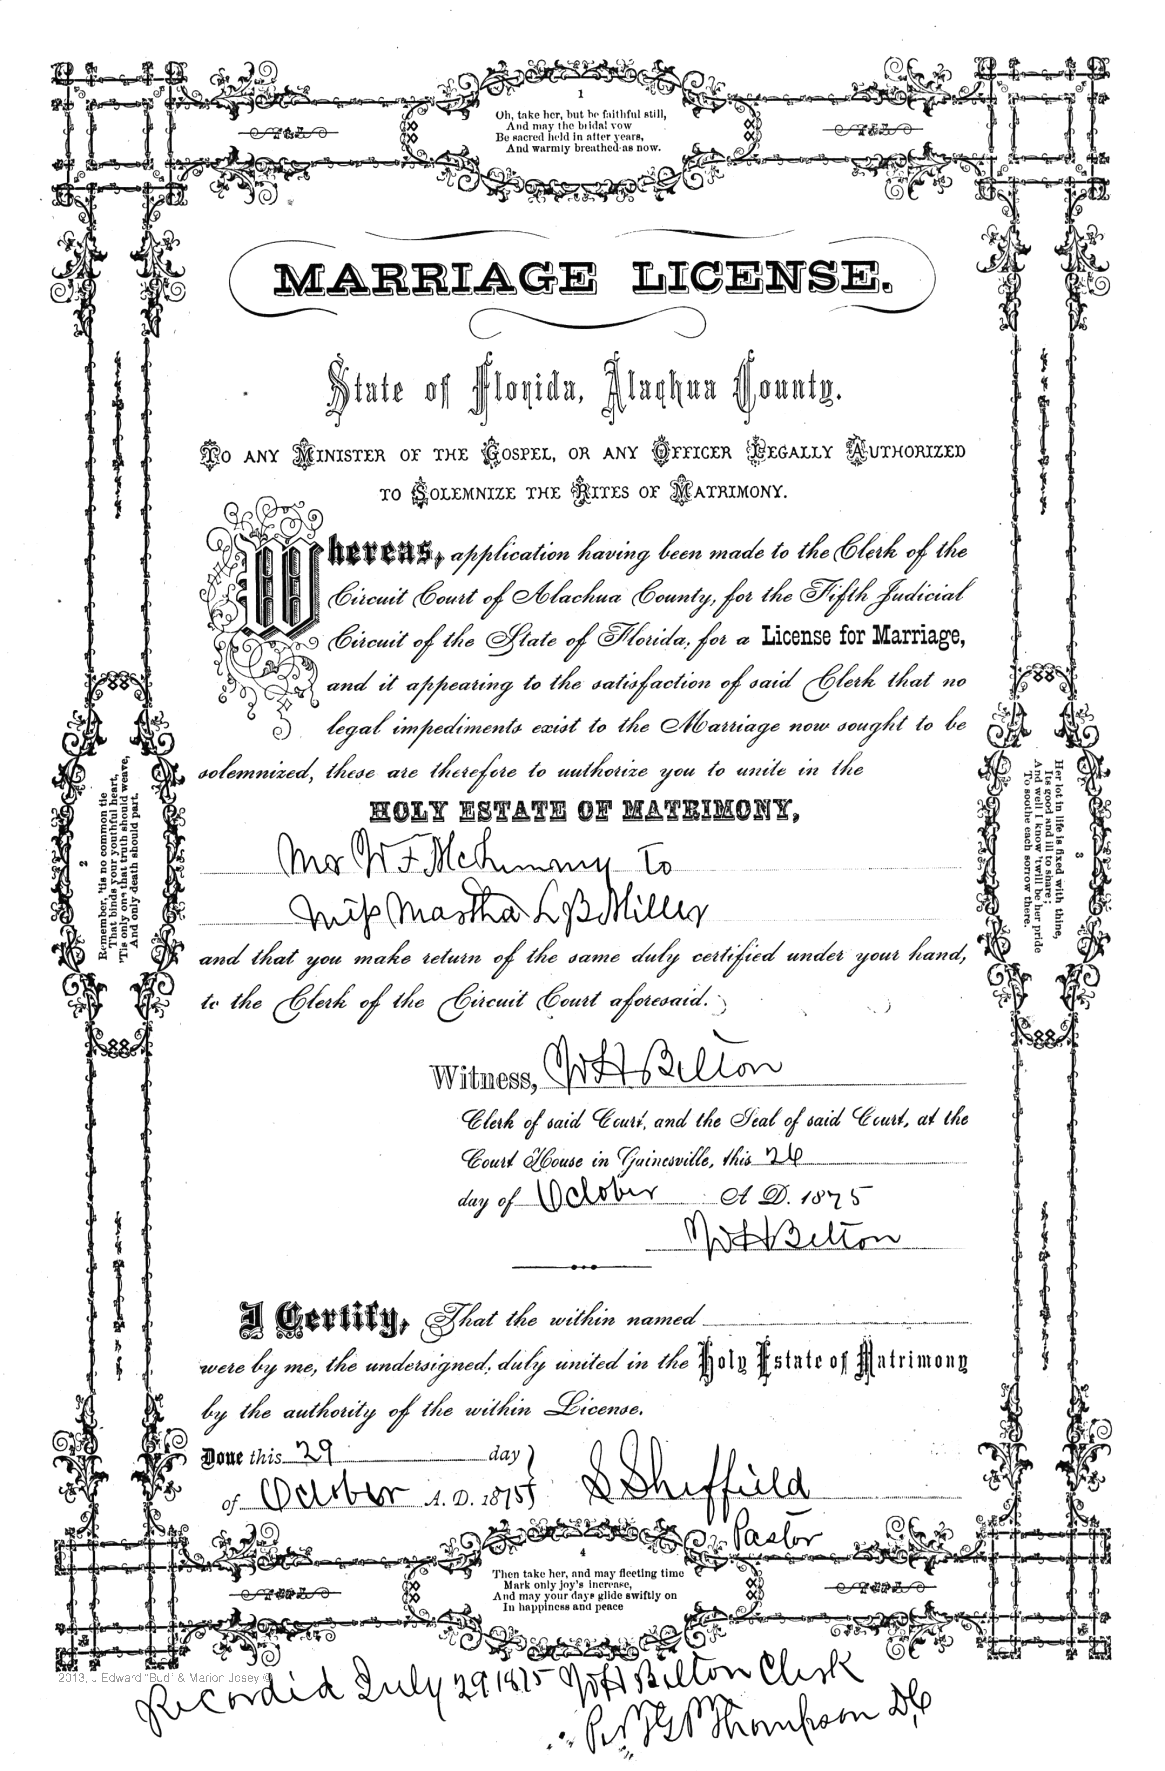 1
Oh, take her, but be faithful still,
And may the bridal vow
Be sacred held in after years,
And warmly breathed as now.
MARRIAGE LICENSE.
State of Florida, Alachua County.
TO ANY MINISTER OF THE GOSPEL, OR ANY OFFICER LEGALLY AUTHORIZED
TO SOLEMNIZE THE RITES OF MATRIMONY.
Whereas, application having been made to the Clerk of the
Circuit Court of Alachua County, for the Fifth Judicial
Circuit of the State of Florida, for a License for Marriage,
and it appearing to the satisfaction of said Clerk that no
legal impediments exist to the Marriage now sought to be
solemnized, these are therefore to authorize you to unite in the
HOLY ESTATE OF MATRIMONY,
Mr W F McKinny To
Miss Martha L B Miller
and that you make return of the same duly certified under your hand,
to the Clerk of the Circuit Court aforesaid.
Witness, W H Belton
Clerk of said Court, and the Seal of said Court, at the
Court House in Gainesville, this 26
day of October A D. 1875
W H Belton
I Certify, That the within named
were by me, the undersigned, duly united in the Holy Estate of Matrimony
by the authority of the within License.
Done this 29 day
of October A. D. 1875
S Sheffield
Pastor
2
Remember, 'tis no common tie
That binds your youthful heart,
'Tis only one that truth should weave,
And only death should part.
3
Her lot in life is fixed with thine,
Its good and ill to share;
And well I know 'twill be her pride
To soothe each sorrow there.
4
Then take her, and may fleeting time
Mark only joy's increase,
And may your days glide swiftly on
In happiness and peace
2013, J. Edward "Bud" & Marion Josey ©
Recordid July 29 1875 W H Belton Clerk
Per Thompson DC